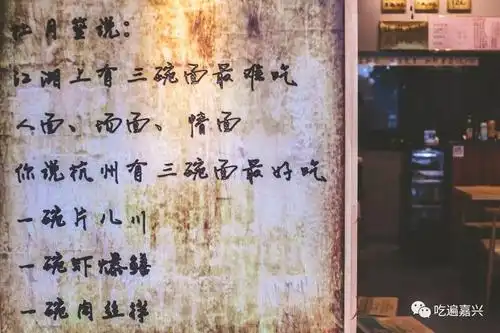 杜月笙说：
江湖上有三碗面最难吃
人面、场面、情面
你说杭州有三碗面最好吃
一碗片儿川
一碗虾爆鳝
一碗肉丝拌
吃遍嘉兴